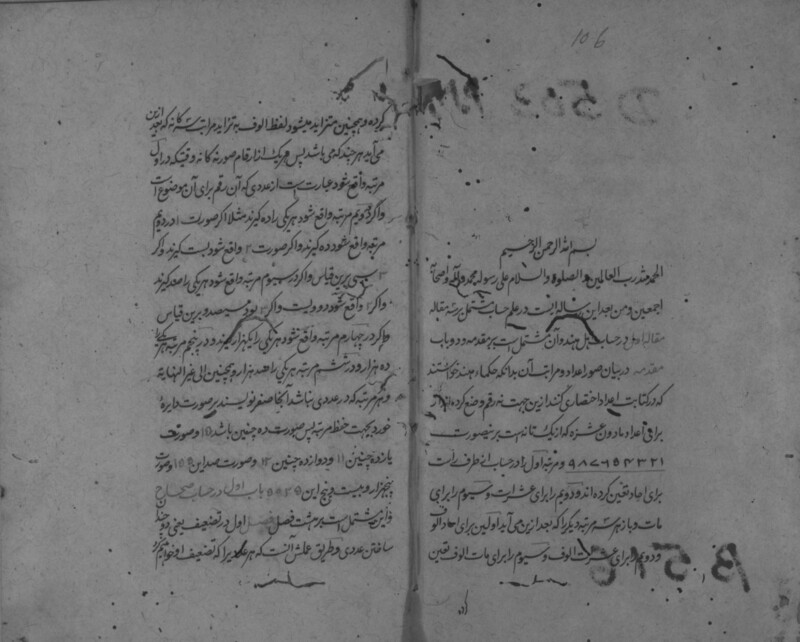 106
D 502
بسم الله الرحمن الرحیم
الحمد لله رب العالمین و الصلوة و السلام علی رسوله محمد و آله و اصحابه
اجمعین و من بعد این رساله ایست در علم حساب مشتمل بر سه مقاله
مقاله اول در حساب اهل هند و آن مشتمل است بر مقدمه و دو باب
مقدمه در بیان صور اعداد و مراتب آن بدانکه حکماء هند خواستند
که در کتابت اعداد اختصاری کنند ازین جهت نه رقم وضع کرده اند
برای آحاد مادون عشره که از یک تا نه است برین صورت
۹۸۷۶۵۴۳۲۱ و مرتبه اول را در حساب از طرف راست
برای احاد تعین کرده اند و دویم را برای عشرات و سیوم را برای
مات و باز هر سه مرتبه دیگر را که بعد ازین می آید اولین برای احاد الوف
و دویم را برای عشرات الوف و سیوم را برای مات الوف تعین
B 516
کرده و همچنین متزاید میشود لفظ الوف به تزاید مراتب سه گانه که بعد ازین
می آید هر چند که می باشد پس هر یک از ارقام صور نه گانه وقتیکه در اول
مرتبه واقع شود عبارت است از عددی که آن رقم برای آن موضوع است
و اگر در دویم مرتبه واقع شود هر یکی را ده گیرند مثلا اگر صورت ۱ در دویم
مرتبه واقع شود ده گیرند و اگر صورت ۲ واقع شود بست گیرند و اگر
۳ سی برین قیاس و اگر در سیوم مرتبه واقع شود هر یکی را صد گیرند
و اگر ۲ واقع شود دو ویست و اگر ۳ بود سیصد و برین قیاس
و اگر در چهارم مرتبه واقع شود هر یکی را یکهزار گیرند و در پنجم مرتبه هر یکی را
ده هزار و در ششم مرتبه هر یکی را صد هزار و همچنین الی غیر النهایة
و هر مرتبه که در عددی نباشد آنجا صفر نویسند بر صورت دایرۀ
خورد بجهت حفظ مرتبه پس صورت ده چنین باشد ۱۰ و صورت
یازده چنین ۱۱ و دوازده چنین ۱۲ و صورت صد این ۱۰۰ و صورت
پنجهزار و بیست و پنج این ۵۰۲۵ باب اول در حساب صحاح
و این مشتمل است بر هشت فصل فصل اول در تضعیف یعنی دو چند
ساختن عددی و طریق عملش آنست که هر عدد یرا که تضعیف او خواهیم